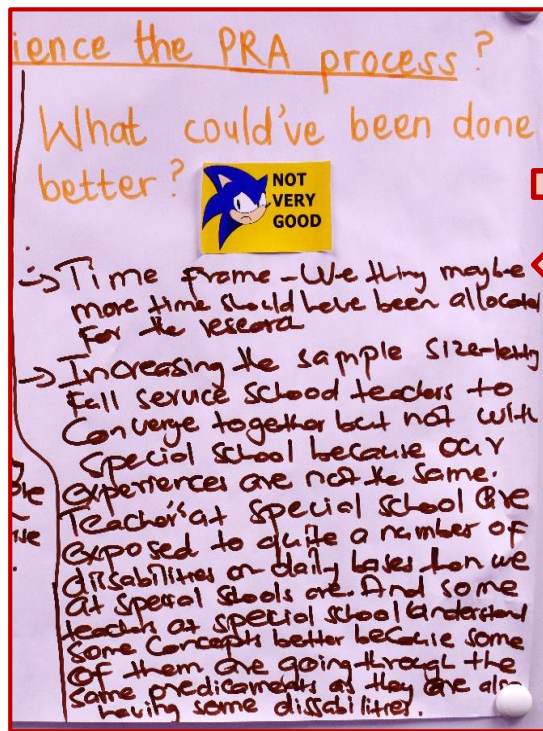 ience the PRA process?
What could've been done
better?
NOT
VERY
GOOD
Time frame - We thing maybe
more time should have been allocated
for the research
Increasing the sample size-letting
Full service school teachers to
Converge together but not with
Special School because our
experiences are not the same.
Teacher's at special school are
exposed to quite a number of
dissabilities on daily bases than we
at special schools are. And some
teachers at special school understand
some concepts better because some
of them are going through the
same predicaments as they are also
having some dissabilities.